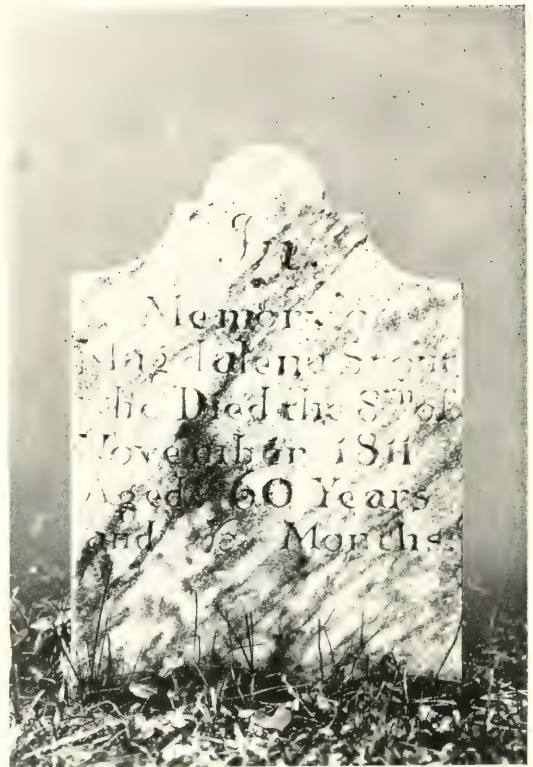 In
Memory of
Magdalena Stout
She Died the 8th of
November 1811
Aged 60 Years
and Months